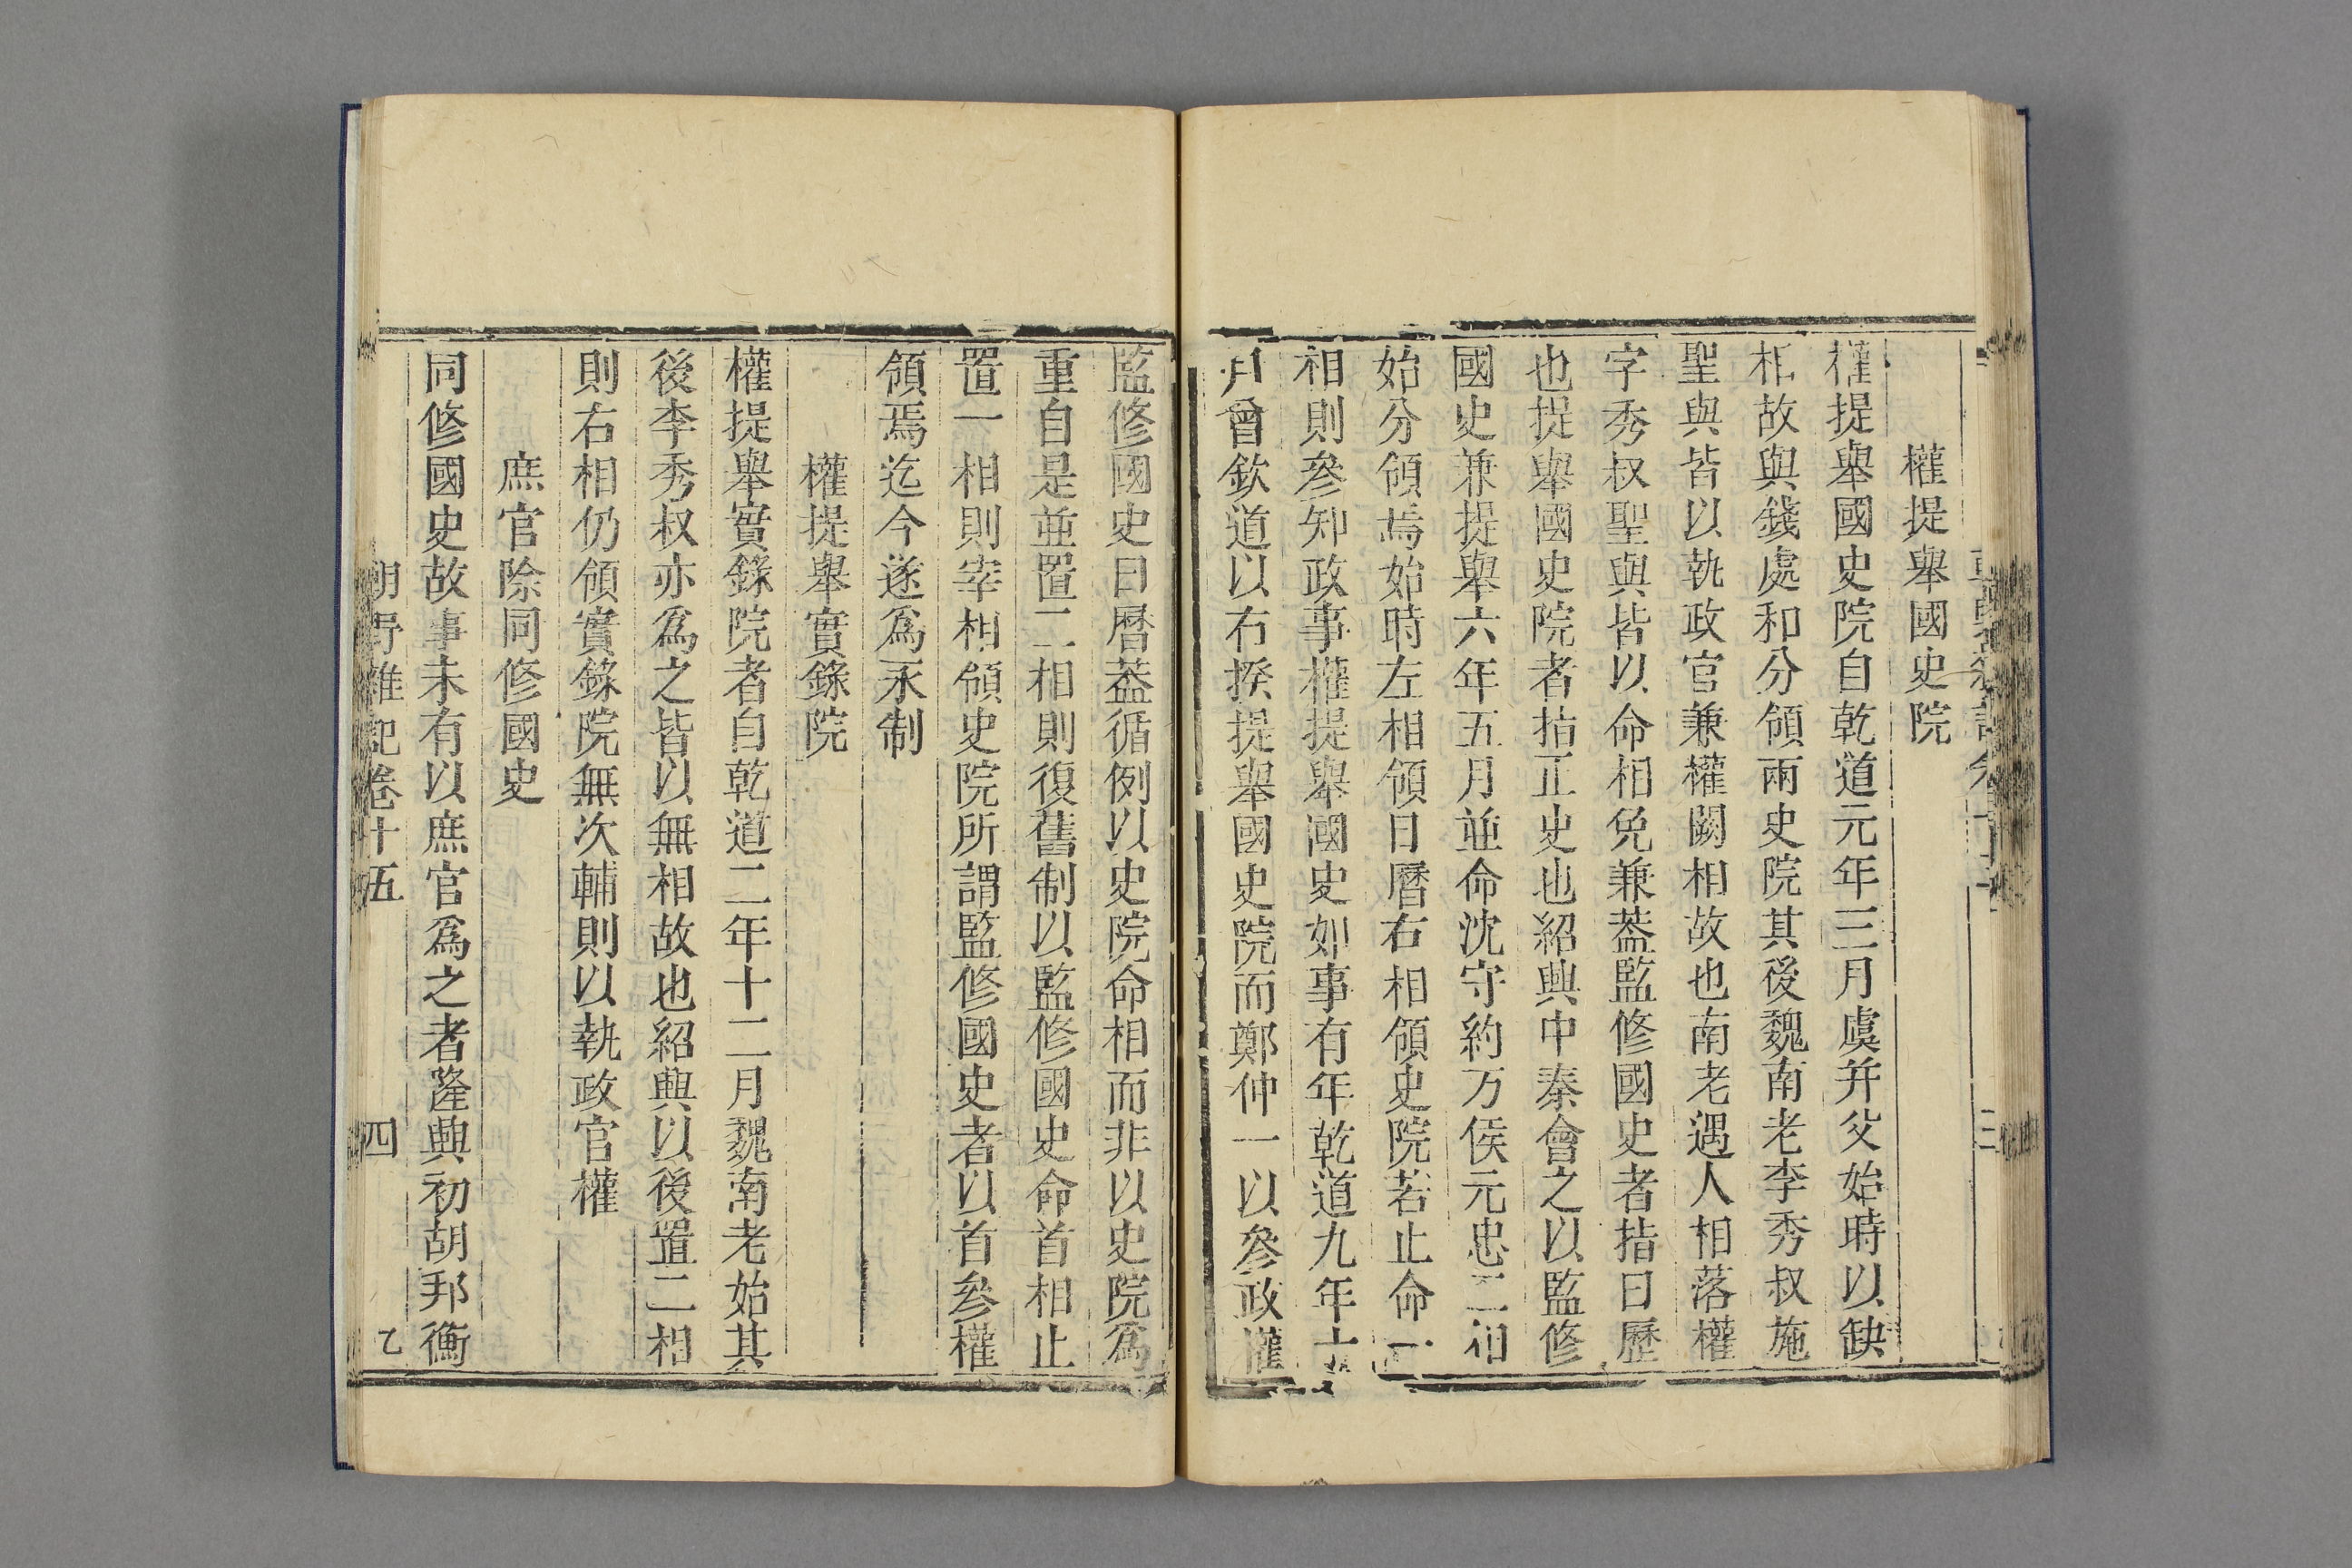 權提舉國史院
權提舉國史院自乾道元年三月虞并父始時以缺
相故與錢處和分領兩史院其後魏南老李秀叔施
聖與皆以執政官兼權闕相故也南老遇人相落權
字秀叔聖與皆以命相免兼葢監修國史者指日歷
也提舉國史院者指正史也紹興中秦會之以監修
國史兼提舉六年五月並命沈守約万俟元忠二相
始分領焉始時左相領日曆右相領史院若止命一
相則參知政事權提舉國史如事有年乾道九年十
月曾欽道以右揆提舉國史院而鄭仲一以參政權
監修國史日曆葢循例以史院命相而非以史院爲
重自是並置二相則復舊制以監修國史命首相止
置一相則宰相領史院所謂監修國史者以首參權
領焉迄今遂爲永制
權提舉實錄院
權提舉實錄院者自乾道二年十二月魏南老始其
後李秀叔亦爲之皆以無相故也紹興以後置二相
則右相仍領實錄院無次輔則以執政官權
庶官除同修國史
同修國史故事未有以庶官爲之者隆興初胡邦衡
朝野雜記卷十五
四
乙